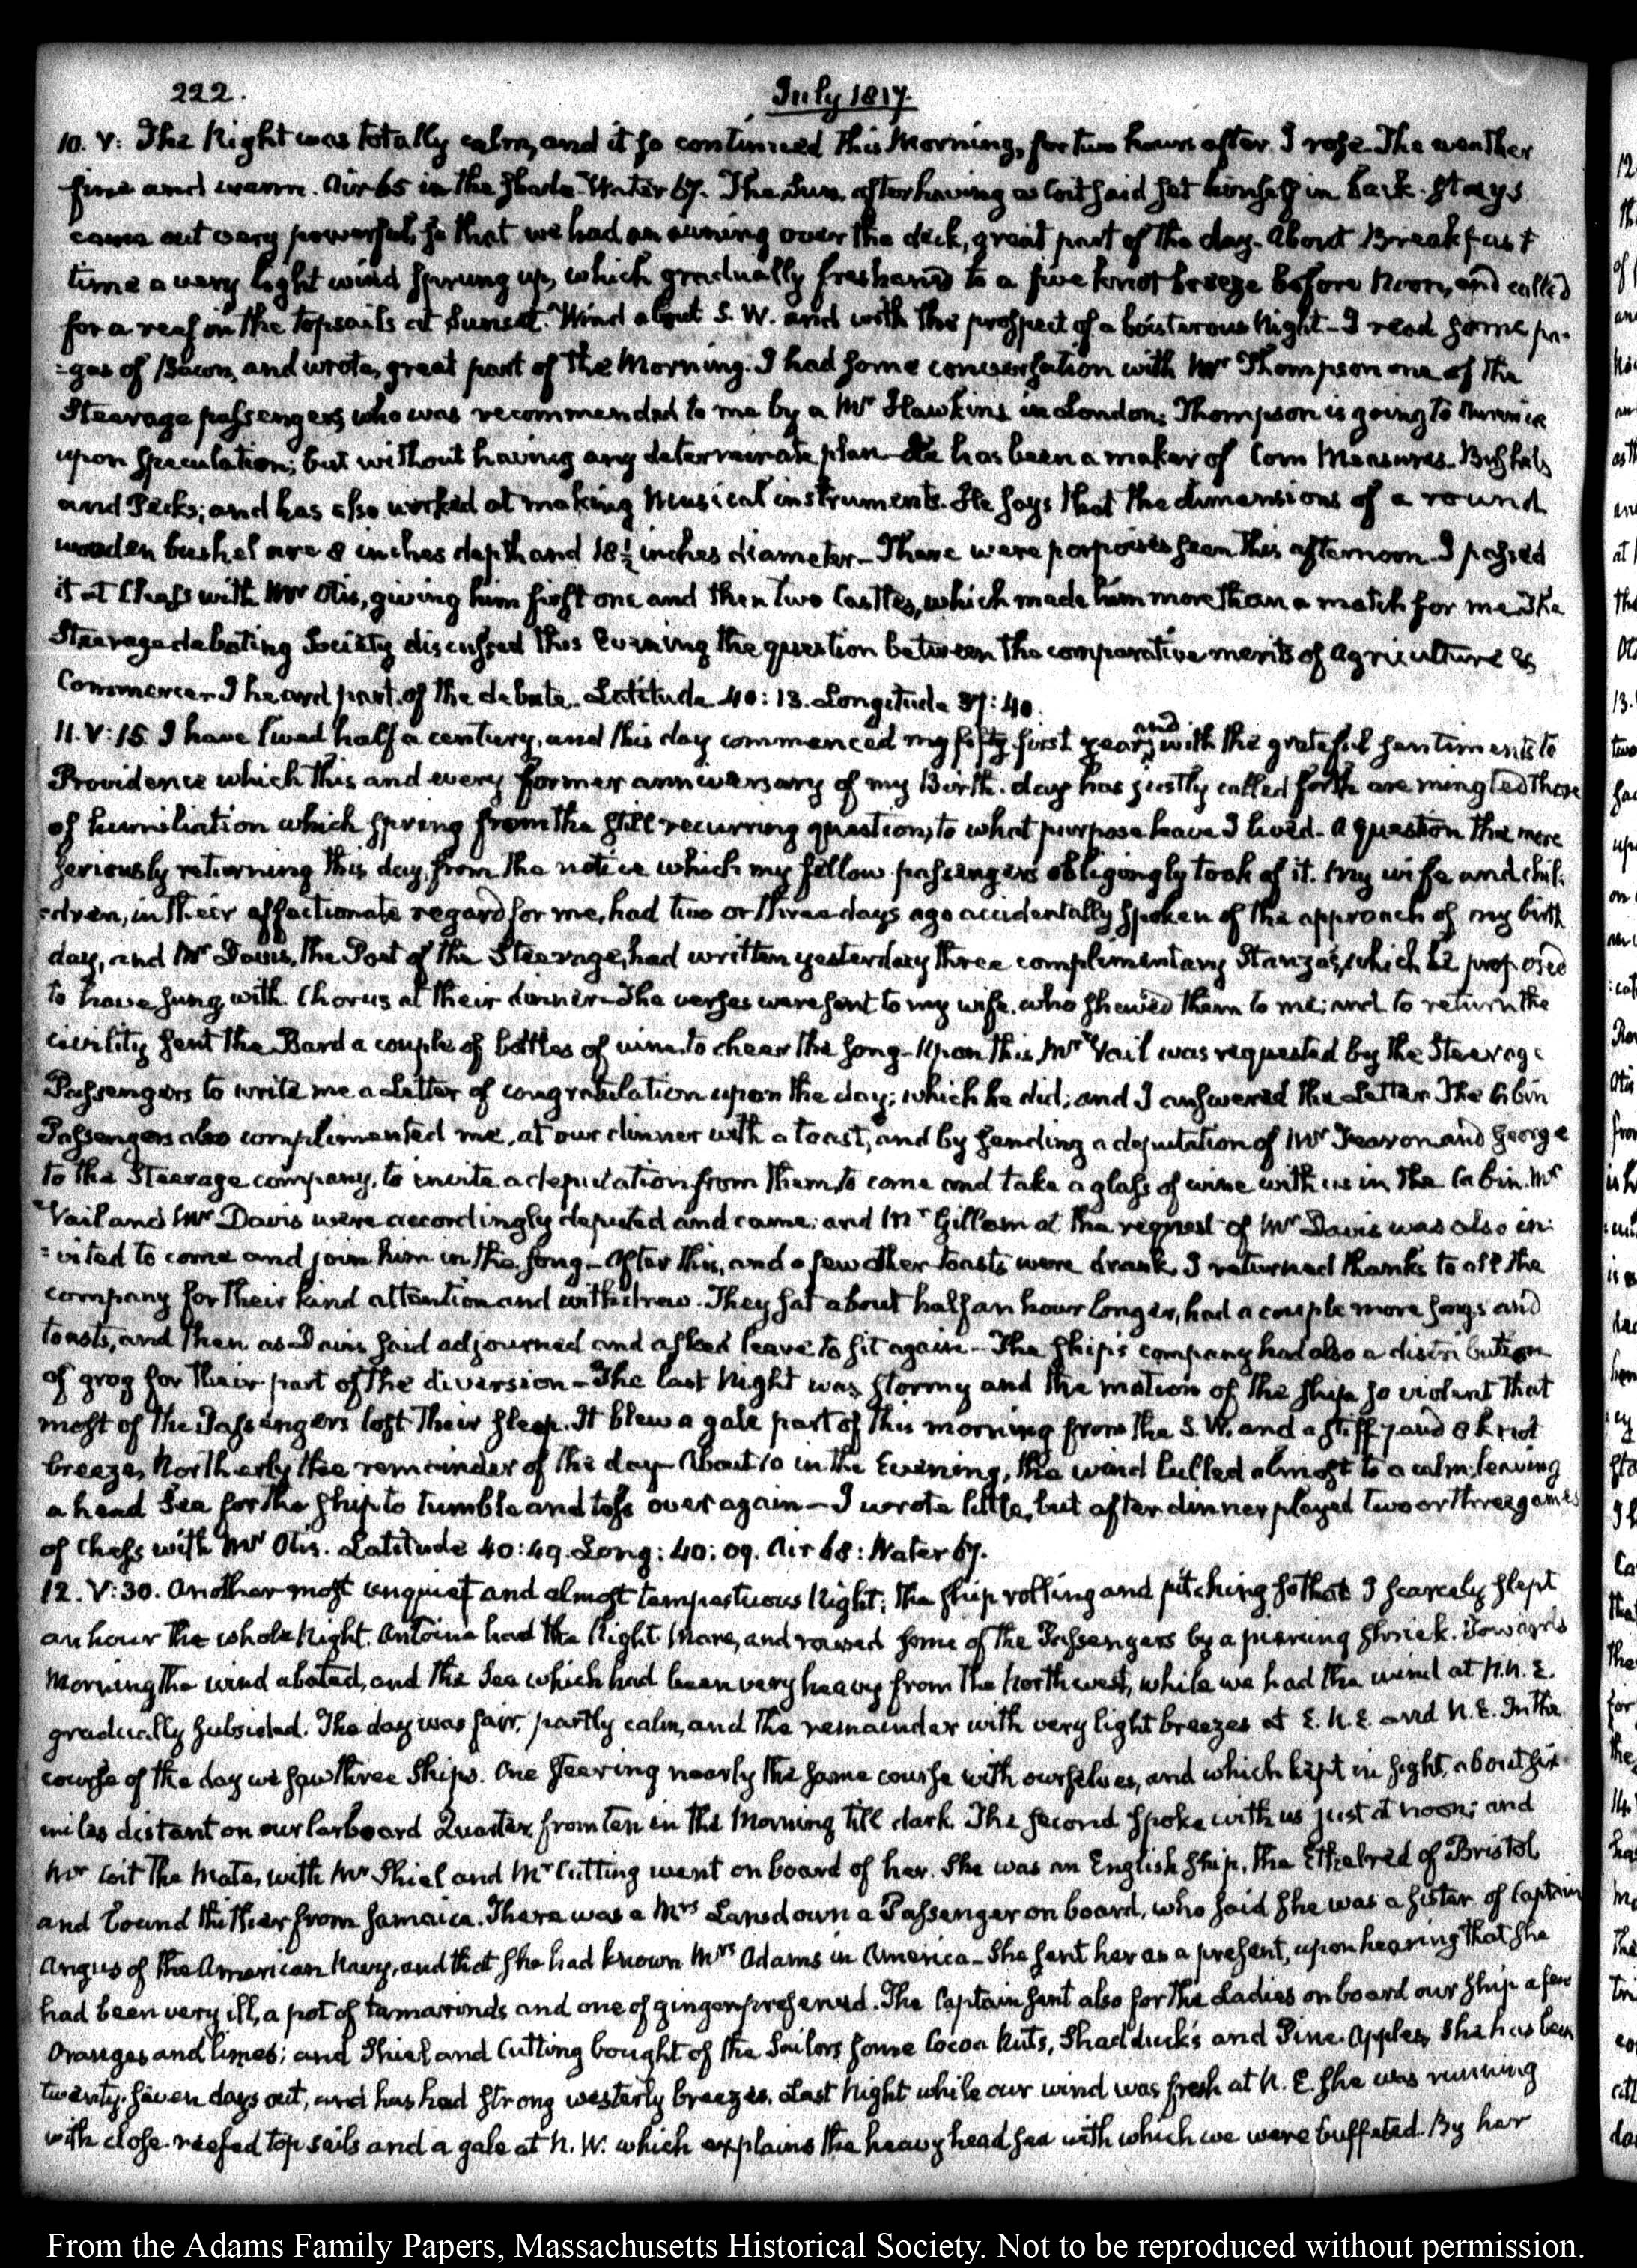 222.
July 1817.
10. V: The Night was totally calm, and it so continued this Morning, for two hours after I rose. The weather
fine and warm. Air 65 in the shade. Water 67. The Sun, after having as Coit said set himself in back-stays
came out very powerful, so that we had an awning over the deck, great part of the day. About Breakfast
time a very light wind sprung up, which gradually freshened to a five knot breeze before Noon, and called
for a reef in the topsails at Sunset. Wind about S.W. and with the prospect of a boisterous Night - I read some pa-
-ges of Bacon, and wrote, great part of the Morning. I had some conversation with Mr Thompson one of the
Steerage passengers, who was recommended to me by a Mr Hawkins in London: Thompson is going to America
upon speculation; but without having any determinate plan - He has been a maker of Corn Measures - Bushels
and Pecks; and has also worked at making Musical instruments. He says that the dimensions of a round
wooden bushel are 8 inches depth and 18½ inches diameter - There were porpoises seen this afternoon. I passed
it at Chess with Mr Otis, giving him first one and then two Castles, which made him more than a match for me. The
Steerage debating Society discussed this Evening the question between the comparative merits of Agriculture &
Commerce. I heard part of the debate. Latitude 40:13. Longitude 37:40.
11. V:15. I have lived half a century, and this day commenced my fifty-first year; and with the grateful sentiments to
Providence which this and every former anniversary of my Birth-day has justly called forth are mingled those
of humiliation which spring from the still recurring question, to what purpose have I lived - A question the more
seriously returning this day, from the notice which my fellow-passengers obligingly took of it. My wife and chil-
-dren, in their affectionate regard for me, had two or three days ago accidentally spoken of the approach of my birth
day, and Mr Davis, the Poet of the Steerage, had written yesterday three complimentary Stanzas, which he proposed
to have sung, with Chorus at their dinner - The verses were sent to my wife, who shewed them to me; and to return the
civility sent the Bard a couple of bottles of wine to cheer the song - Upon this, Mr Vail was requested by the Steerage
Passengers to write me a Letter of congratulation upon the day; which he did; and I answered the Letter. The Cabin
Passengers also complimented me, at our dinner with a toast, and by sending a deputation of Mr Fearon and George
to the Steerage company, to invite a deputation from them, to come and take a glass of wine with us in the Cabin. Mr
Vail and Mr Davis were accordingly deputed and came; and Mr Gillam at the request of Mr Davis was also in-
-vited to come and join him in the song - After this, and a few other toasts were drank, I returned thanks to all the
company for their kind attention and withdrew. They sat about half an hour longer, had a couple more songs and
toasts, and then as Davis said adjourned and asked leave to sit again - The ship's company had also a distribution
of grog for their part of the diversion - The last Night was stormy and the motion of the ship so violent that
most of the Passengers lost their sleep. It blew a gale part of this morning from the S.W. and a stiff 7 and 8 knot
breeze, Northerly the remainder of the day - About 10 in the Evening, the wind lulled almost to a calm, leaving
a head Sea for the ship to tumble and toss over again - I wrote little, but after dinner played two or three games
of Chess with Mr Otis. Latitude 40:49. Long: 40:09. Air 68: Water 67.
12. V:30. Another most unquiet and almost tempestuous Night; the ship rolling and pitching so that I scarcely slept
an hour the whole Night. Antoine had the Night Mare, and roused some of the Passengers by a piercing shriek. Towards
Morning the wind abated, and the Sea which had been very heavy from the Northwest, while we had the wind at N.N.E.
gradually subsided. The day was fair, partly calm, and the remainder with very light breezes at E.N.E. and N.E. In the
course of the day we saw three Ships. One steering nearly the same course with ourselves, and which kept in sight, about six
miles distant on our larboard Quarter, from ten in the Morning till dark. The second spoke with us just at noon; and
Mr Coit the Mate, with Mr Shiel and Mr Cutting went on board of her. She was an English Ship, the Ethelred of Bristol
and bound thither from Jamaica. There was a Mrs Lansdown a Passenger on board, who said she was a sister of Captain
Angus of the American Navy, and that she had known Mrs Adams in America - She sent her as a present, upon hearing that she
had been very ill, a pot of tamarinds and one of ginger preserved. The Captain sent also for the Ladies on board our ship a few
Oranges and limes; and Shiel and Cutting bought of the Sailors some Cocoa Nuts, Shadducks and Pine-Apples. She has been
twenty-seven days out, and has had strong westerly breezes. Last Night while our wind was fresh at N.E. she was running
with close-reefed topsails and a gale at N.W. which explains the heavy head sea with which we were buffeted. By her
From the Adams Family Papers, Massachusetts Historical Society. Not to be reproduced without permission.